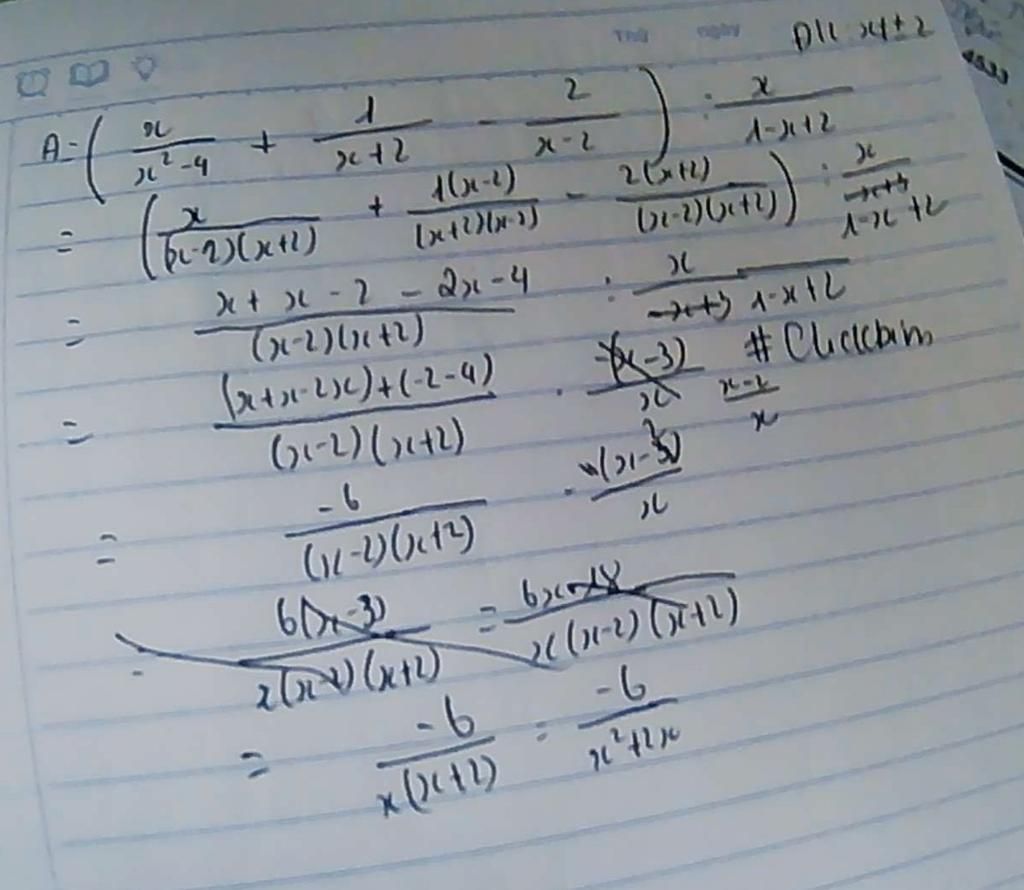 Thứ ngày ĐK: x≠±2
A = ( x/(x²-4) + 1/(x+2) - 2/(x-2) ) : x/(1-x+2)
= ( x/((x-2)(x+2)) + 1(x-2)/((x+2)(x-2)) - 2(x+2)/((x-2)(x+2)) ) : x/(1-x+2)
= (x+x-2-2x-4)/((x-2)(x+2)) : x/(1-x+2)
= ((x+x-2x)+(-2-4))/((x-2)(x+2)) . -(x-3)/x (x-2)/x
= -6/((x-2)(x+2)) . (x-2)/x
= 6(x-3)/(x(x-2)(x+2)) = (6x-18)/(x(x-2)(x+2))
= -6/(x(x+2)) = -6/(x²+2x)